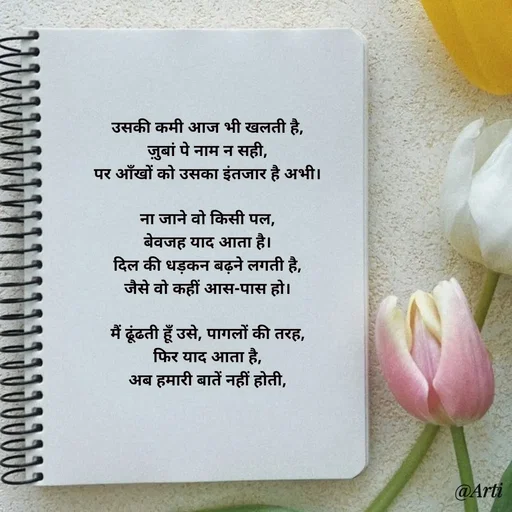 उसकी कमी आज भी खलती है,
ज़ुबां पे नाम न सही,
पर आँखों को उसका इंतजार है अभी।
ना जाने वो किसी पल,
बेवजह याद आता है।
दिल की धड़कन बढ़ने लगती है,
जैसे वो कहीं आस-पास हो।
मैं ढूंढती हूँ उसे, पागलों की तरह,
फिर याद आता है,
अब हमारी बातें नहीं होती,
@Arti